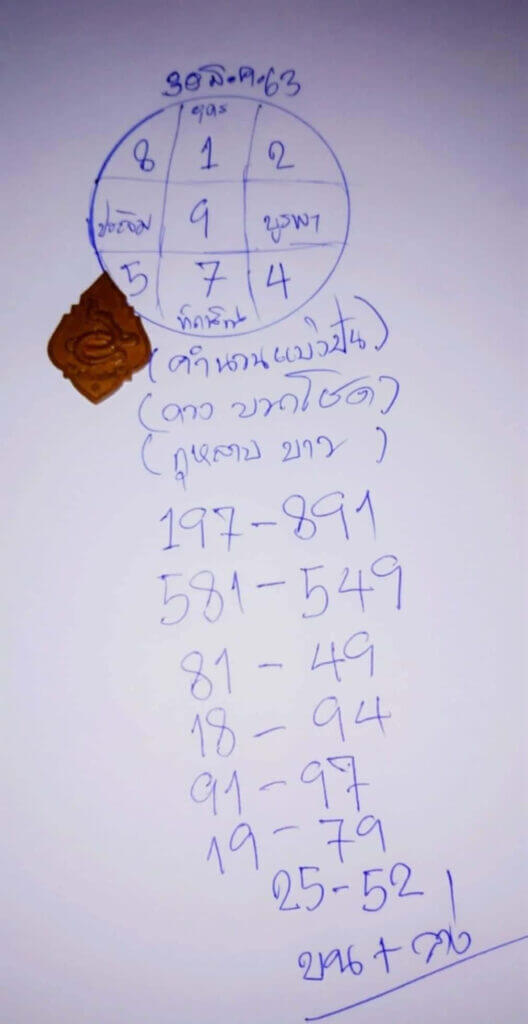 30 มี.ค.63
อุดร
8 1 2
ประจิม 9 บูรพา
5 7 4
ทักษิณ
(คำนวนแบ่งปัน)
(ดาว บาทโชค)
(กุหลาบ ขาว)
197-891
581-549
81-49
18-94
91-97
19-79
25-52
บน+ล่าง